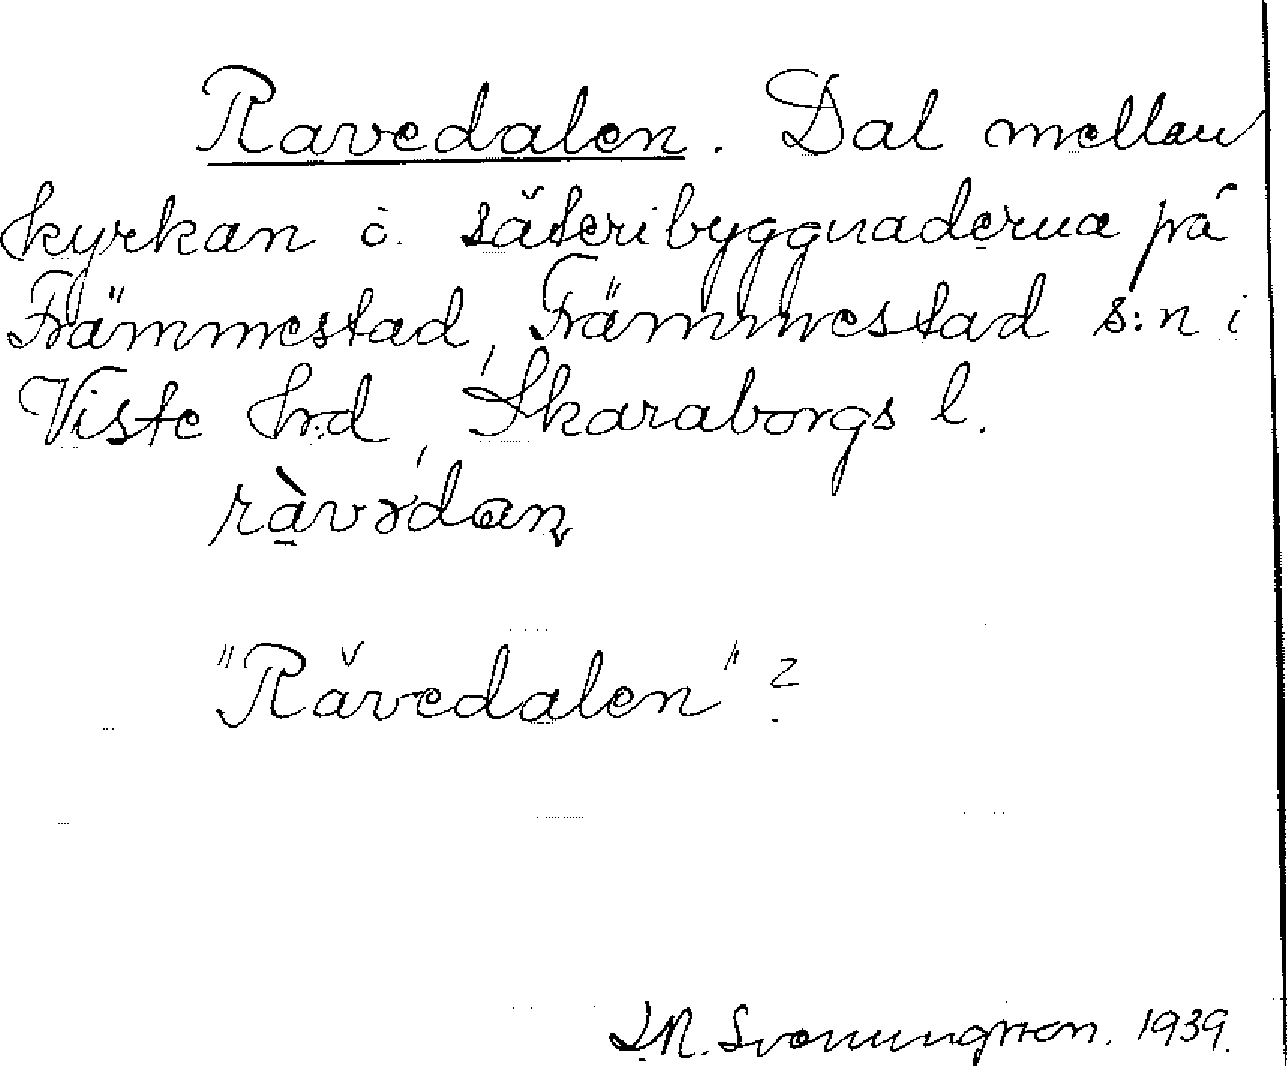 Ravedalen. Dal mellan
kyrkan o. säteribyggnaderna på
Främmestad, Främmestad s:n i
Viste hrd, Skaraborgs l.
ràvədan
"Rävedalen"?
Svenungsson. 1939.